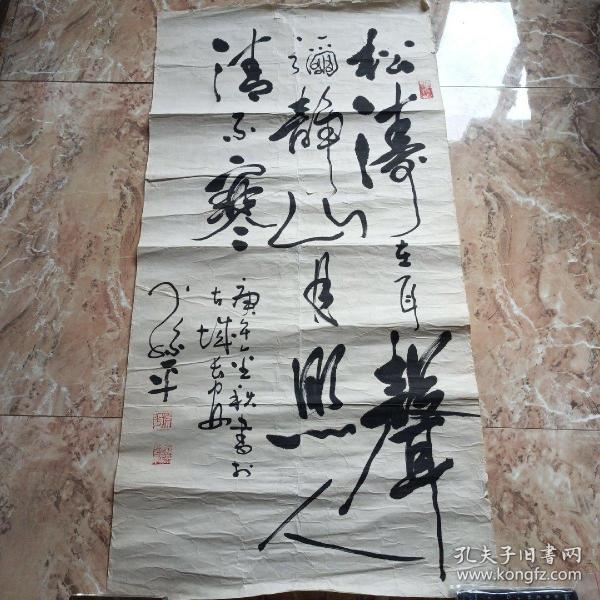 松濤在耳聲
彌靜山月照人
清不寒
庚午年秋書於
古城長安
孔夫子旧書网
www.kongfz.com